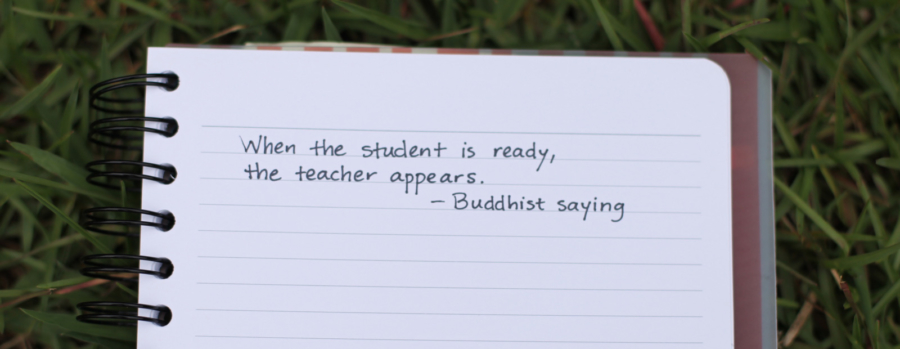 When the student is ready,
the teacher appears.
– Buddhist saying